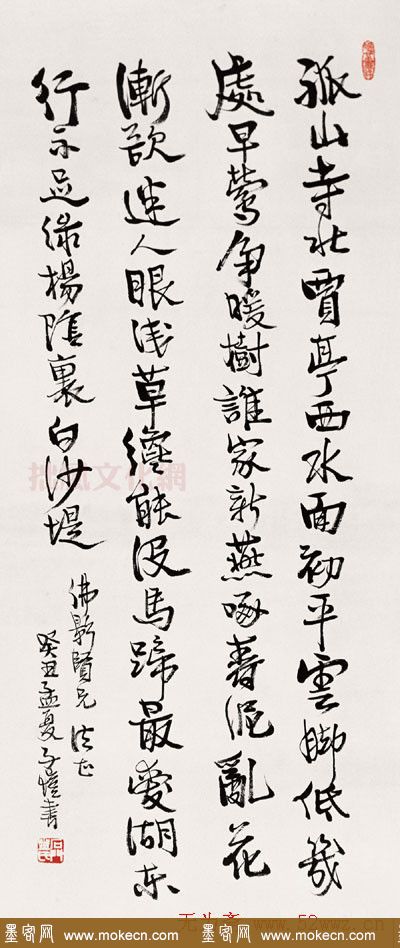 孤山寺北賈亭西水面初平雲脚低幾
處早鶯争暖樹誰家新燕啄春泥亂花
漸欲迷人眼浅草纔能没馬蹄最愛湖东
行不足緑楊陰裏白沙堤
佛影賢兄法正
癸丑孟夏子愷書
文化網
www.52wwz.cn
墨客网 www.mokecn.com 墨客网 www.mokecn.com